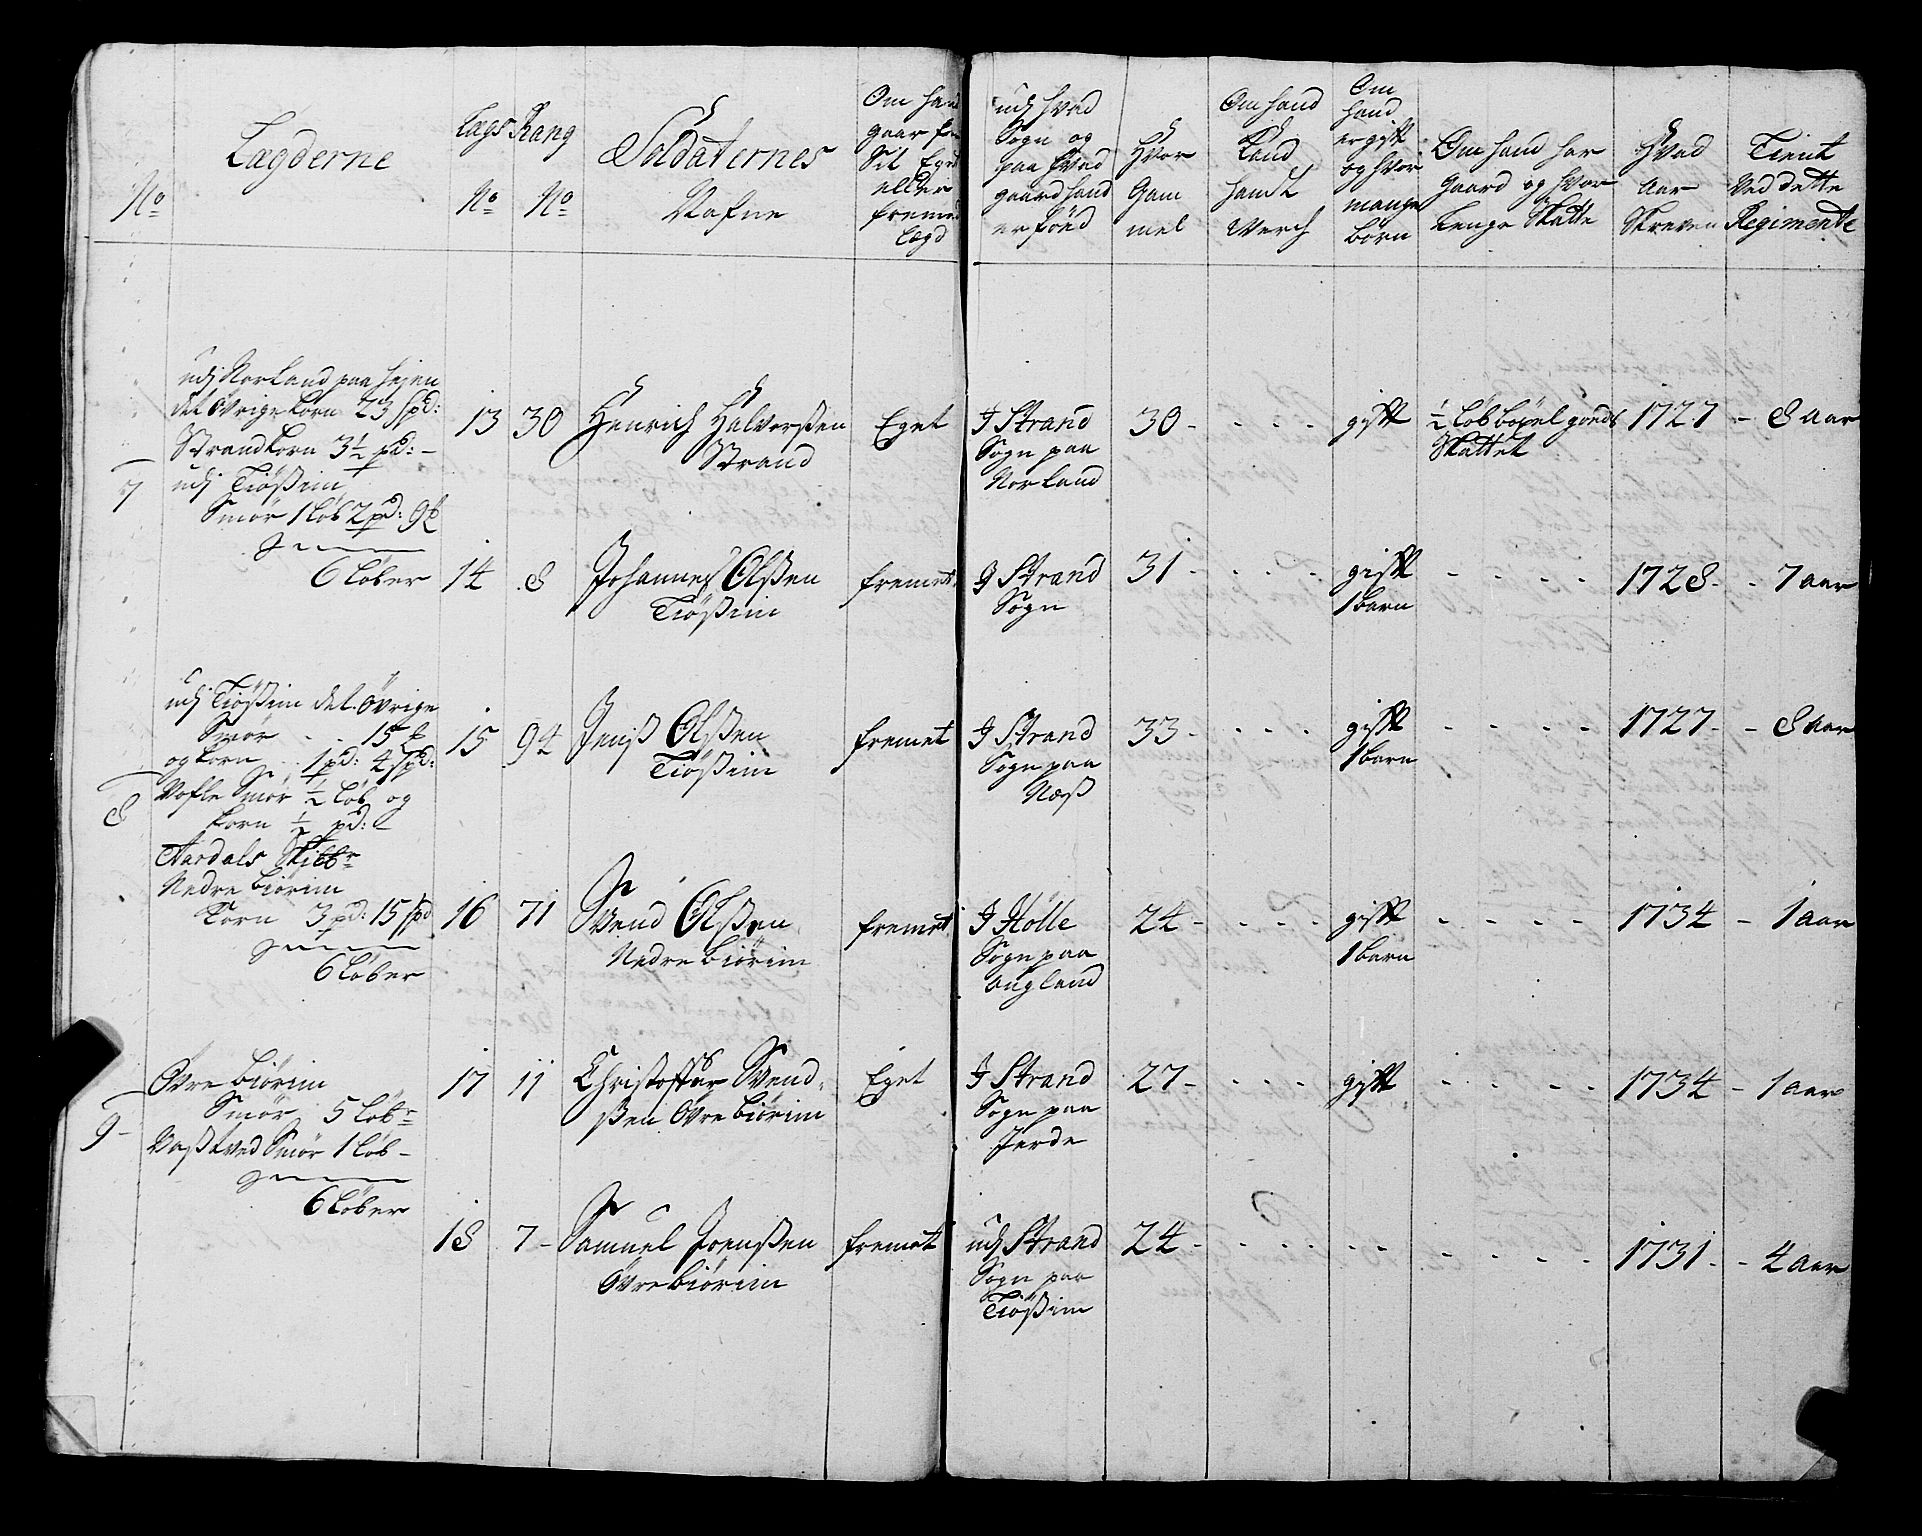 No
Lægderne
Lægs No
Rang No
Soldaternes
Nafne
Om hand
gaar for
Sit Eget
eller
fremet
Lægd
udj hvad
Sogn og
paa hvad
gaard hand
er föed
Hvor
Gam
mel
Om hand
kand
handt
Werch
Om
hand
er gift
og hvor
mange
börn
Om hand har
gaard og hvor
Lenge Skatte
Hvad
Aar
Skreven
Tient
Ved dette
Regimente
7
udj Norland paa hejen
det övrige korn 23 spd:
Strandkorn 3½ pd: -
udj Tiößim
Smör 1 löb 2 pd: 9 ℔
6 Löber
13 30 Henrich Halvorßen
Strand
Eget
J Strand
Sogn paa
Norland
30 - - - - gift
½ löb böxel gods
Skattet
1727 - 8 aar
14 8 Johannes Olßen
Tiößim
fremet
J Strand
Sogn
31 - - - - gift
1 barn
- - - - 1728 - - 7 aar
8
udj Tiößim det övrige
Smör - - 15 ℔
og korn - 1 pd: 4 spd:
Vofle Smör ½ Löb og
korn ½ pd: -
Aardals Skibbr
Nedre biörim
Korn 3 pd: 15 spd
6 Löber
15 94 Jenß Olßen
Tiößim
fremet
J Strand
Sogn paa
Næß
33 - - - - gift
1 barn
- - - - 1727 - - 8 aar
16 71 Svend Olßen
Nedre biörim
fremet
J Hölle
Sogn paa
Augland
24 - - - - gift
1 barn
- - - - 1734 - 1 aar
9 -
Övre biörim
Smör 5 löbr
Vaßtved Smör 1 löb -
6 Löber
17 11 Christoffer Svend-
ßen Övre biörim
Eget
J Strand
Sogn paa
Jerde
27 - - - - gift
- - - - 1734 - 1 aar
18 7 - Samuel Joenßen
Övre biörim
fremet
udj Strand
Sogn paa
Tiößim
24 - - - - - -
- - - - 1731 - - 4 aar